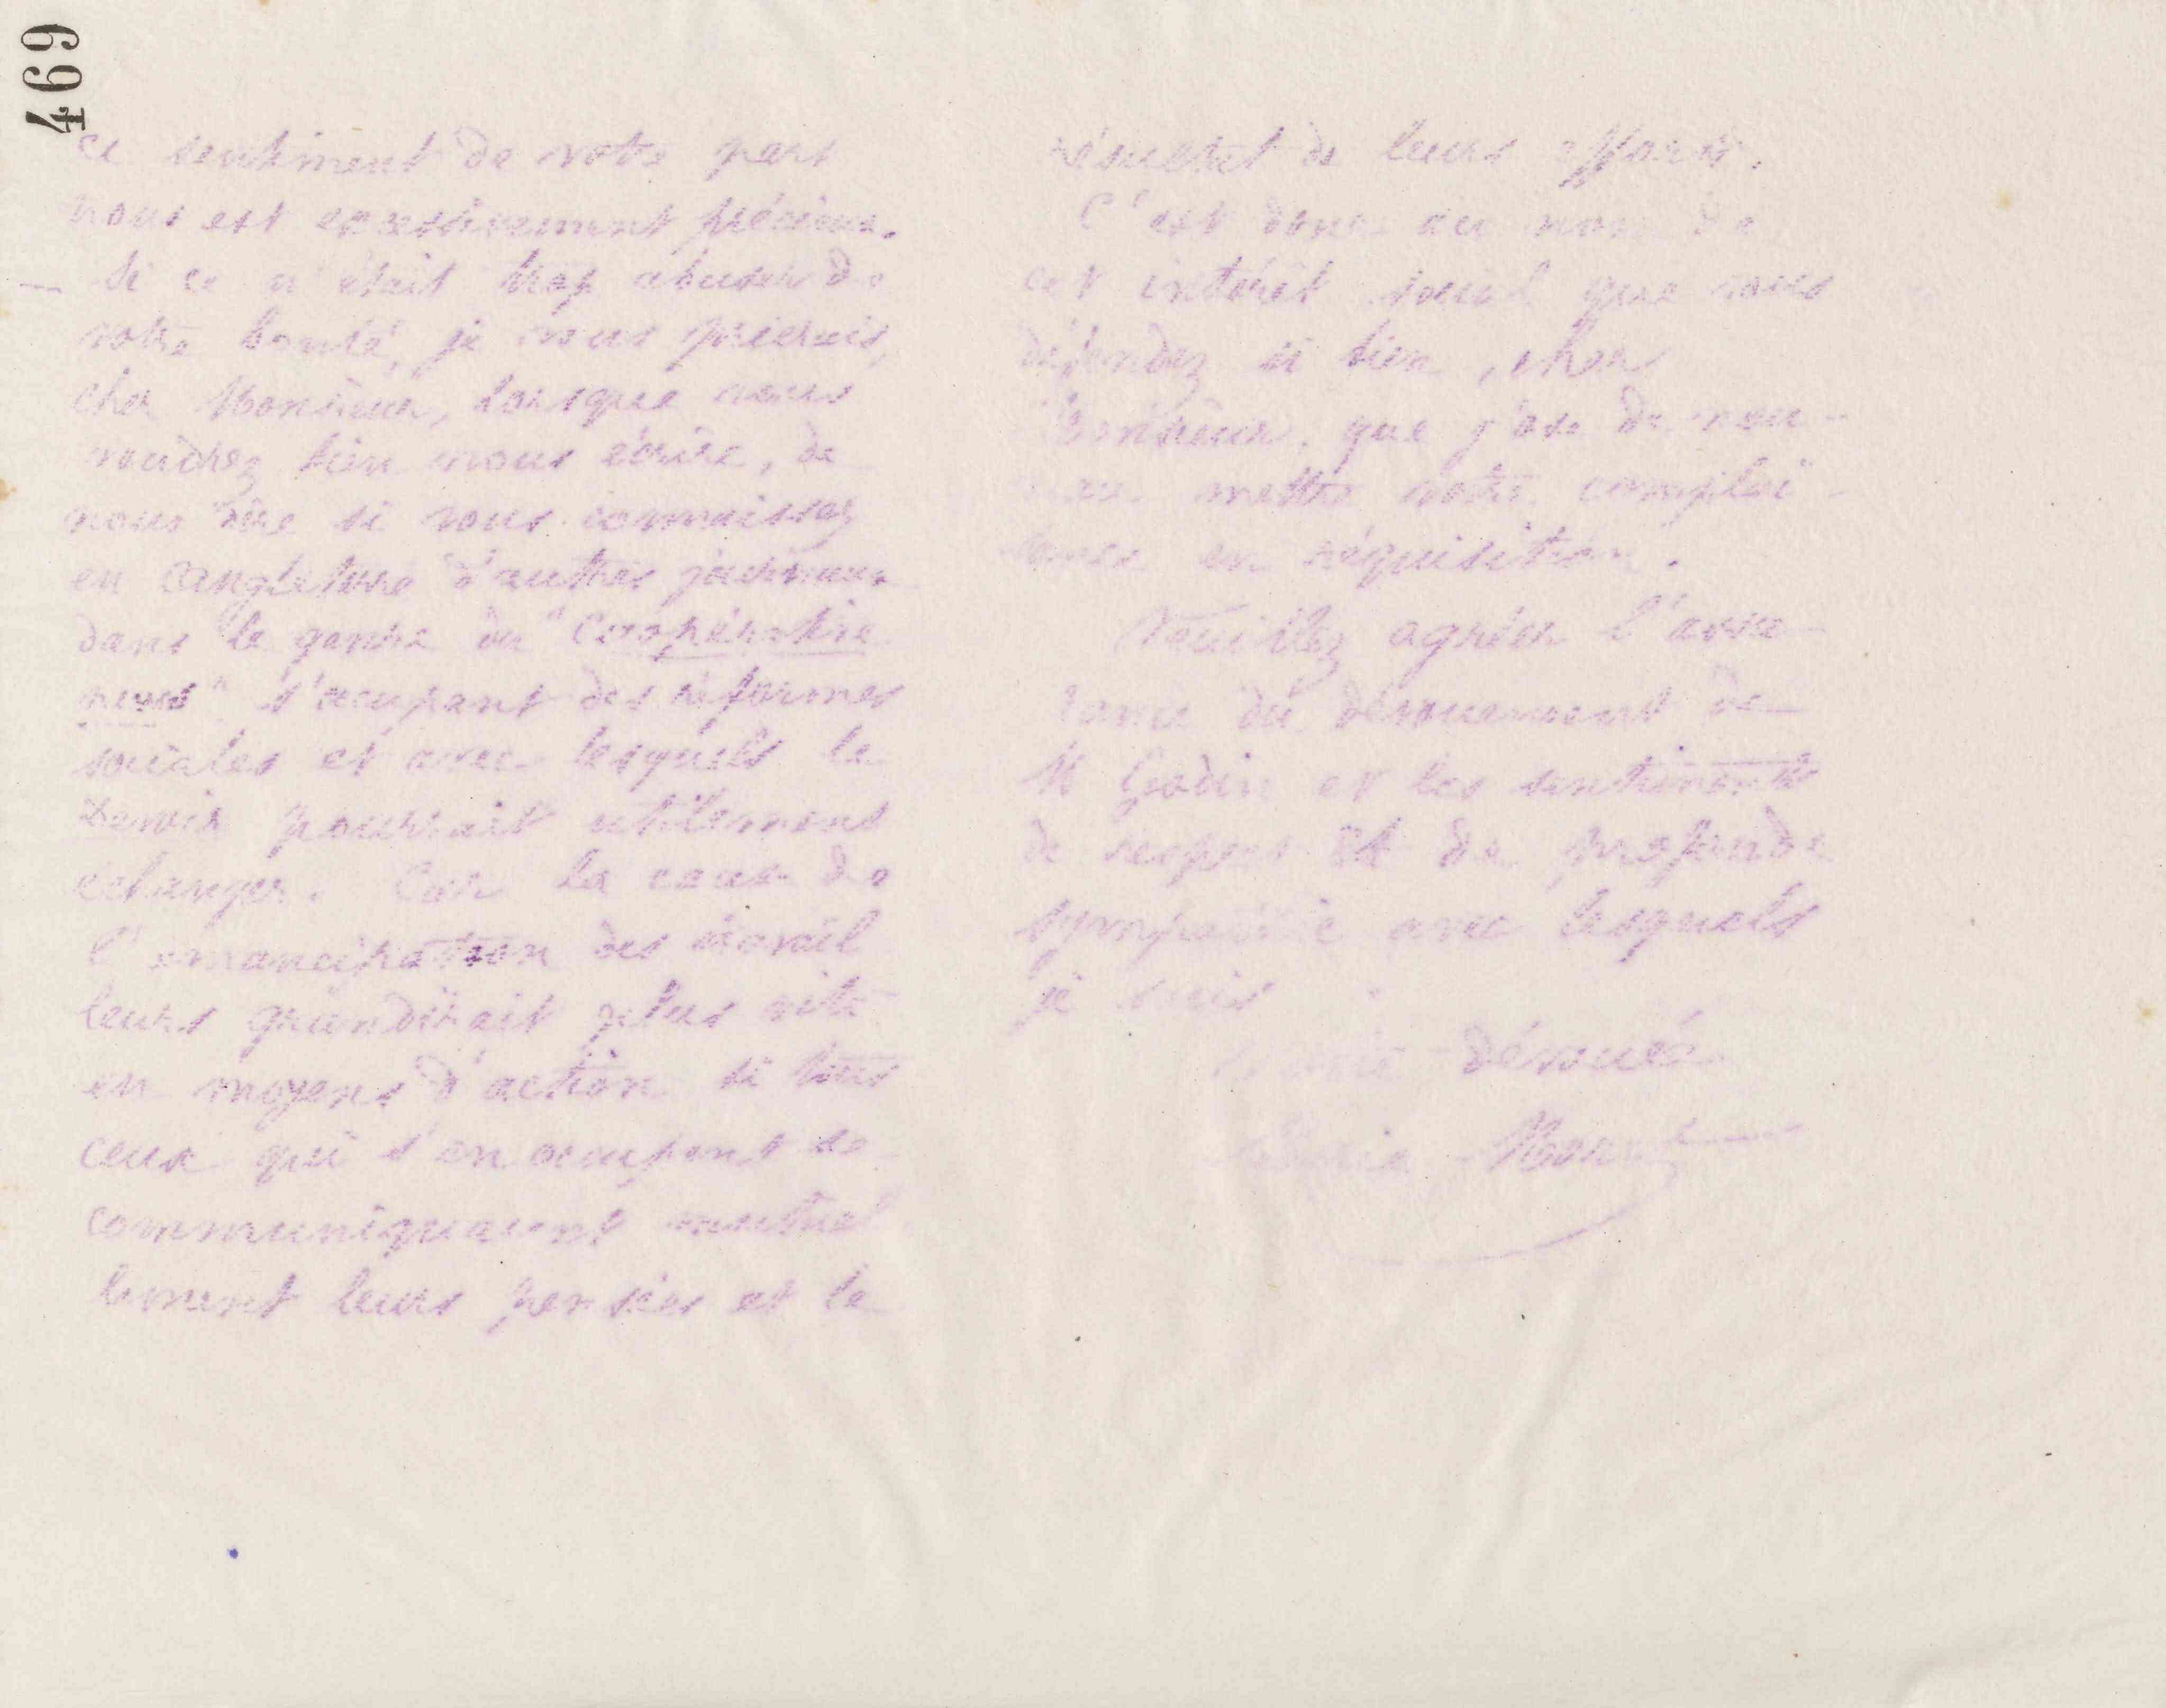 469
ce sentiment de votre part
nous est excessivement précieux.
— Si ce n'était trop abuser de
votre bonté, je vous prierais,
cher Monsieur, lorsque vous
voudrez bien nous écrire, de
nous dire si vous connaissez
en Angleterre d'autres journaux
dans le genre du "Coopérative
news" s'occupant des réformes
sociales et avec lesquels le
Devoir pourrait utilement
échanger. Car la cause de
l'émancipation des travail
leurs grandirait plus vite
en moyens d'action si tous
ceux qui s'en occupent se
communiquaient mutuel
lement leurs pensées et le
résultat de leurs efforts.
C'est donc au nom de
cet intérêt social que vous
défendez si bien, cher
Monsieur, que j'ose de nou-
veau mettre votre complai-
sance en réquisition.
Veuillez agréer l'assu-
rance du dévouement de
M Godin et les sentiments
de respect et de profonde
sympathie avec lesquels
je suis
dévouée
Marie Moret